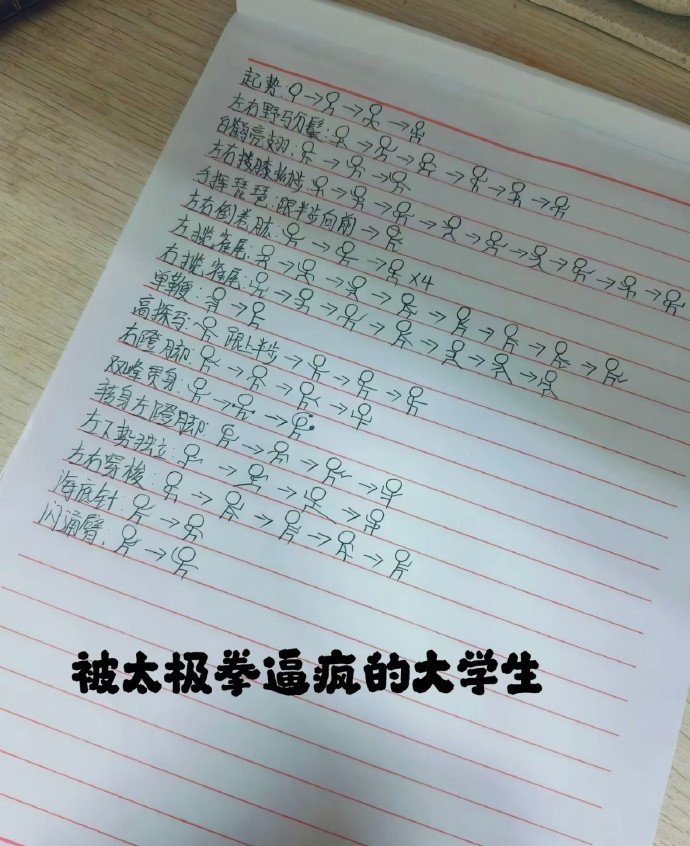 起势: → → →
左右野马分鬃: → → → → →
白鹤亮翅: → →
左右搂膝拗步: → → → → → → →
手挥琵琶: 跟半步向前 →
左右倒卷肱: → → ×4
左揽雀尾: → → → → → → →
右揽雀尾: → → → → → →
单鞭: →
高探马: 跟上半步 → → →
右蹬脚: → → →
双峰贯耳: → →
转身左蹬脚: → → →
左下势独立: → → →
左右穿梭: → → → →
海底针: →
闪通臂: →
被太极拳逼疯的大学生